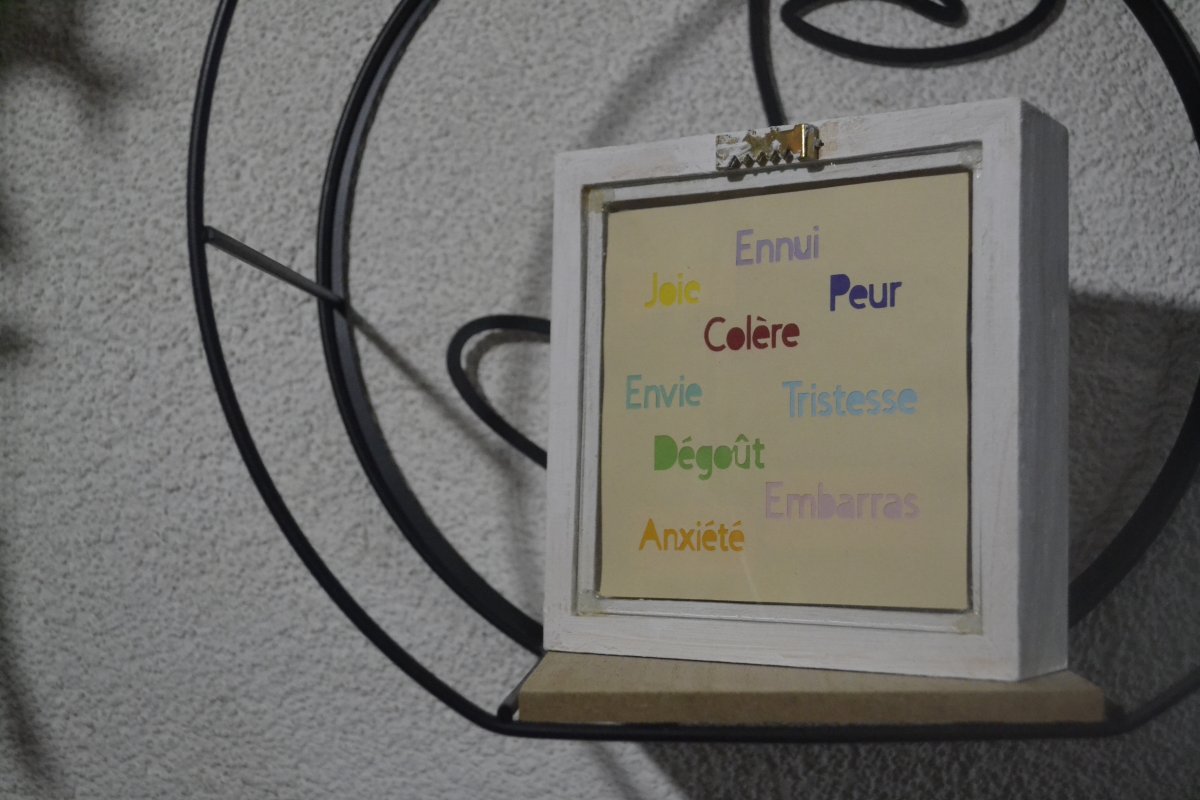 Ennui
Joie
Peur
Colère
Envie
Tristesse
Dégoût
Embarras
Anxiété